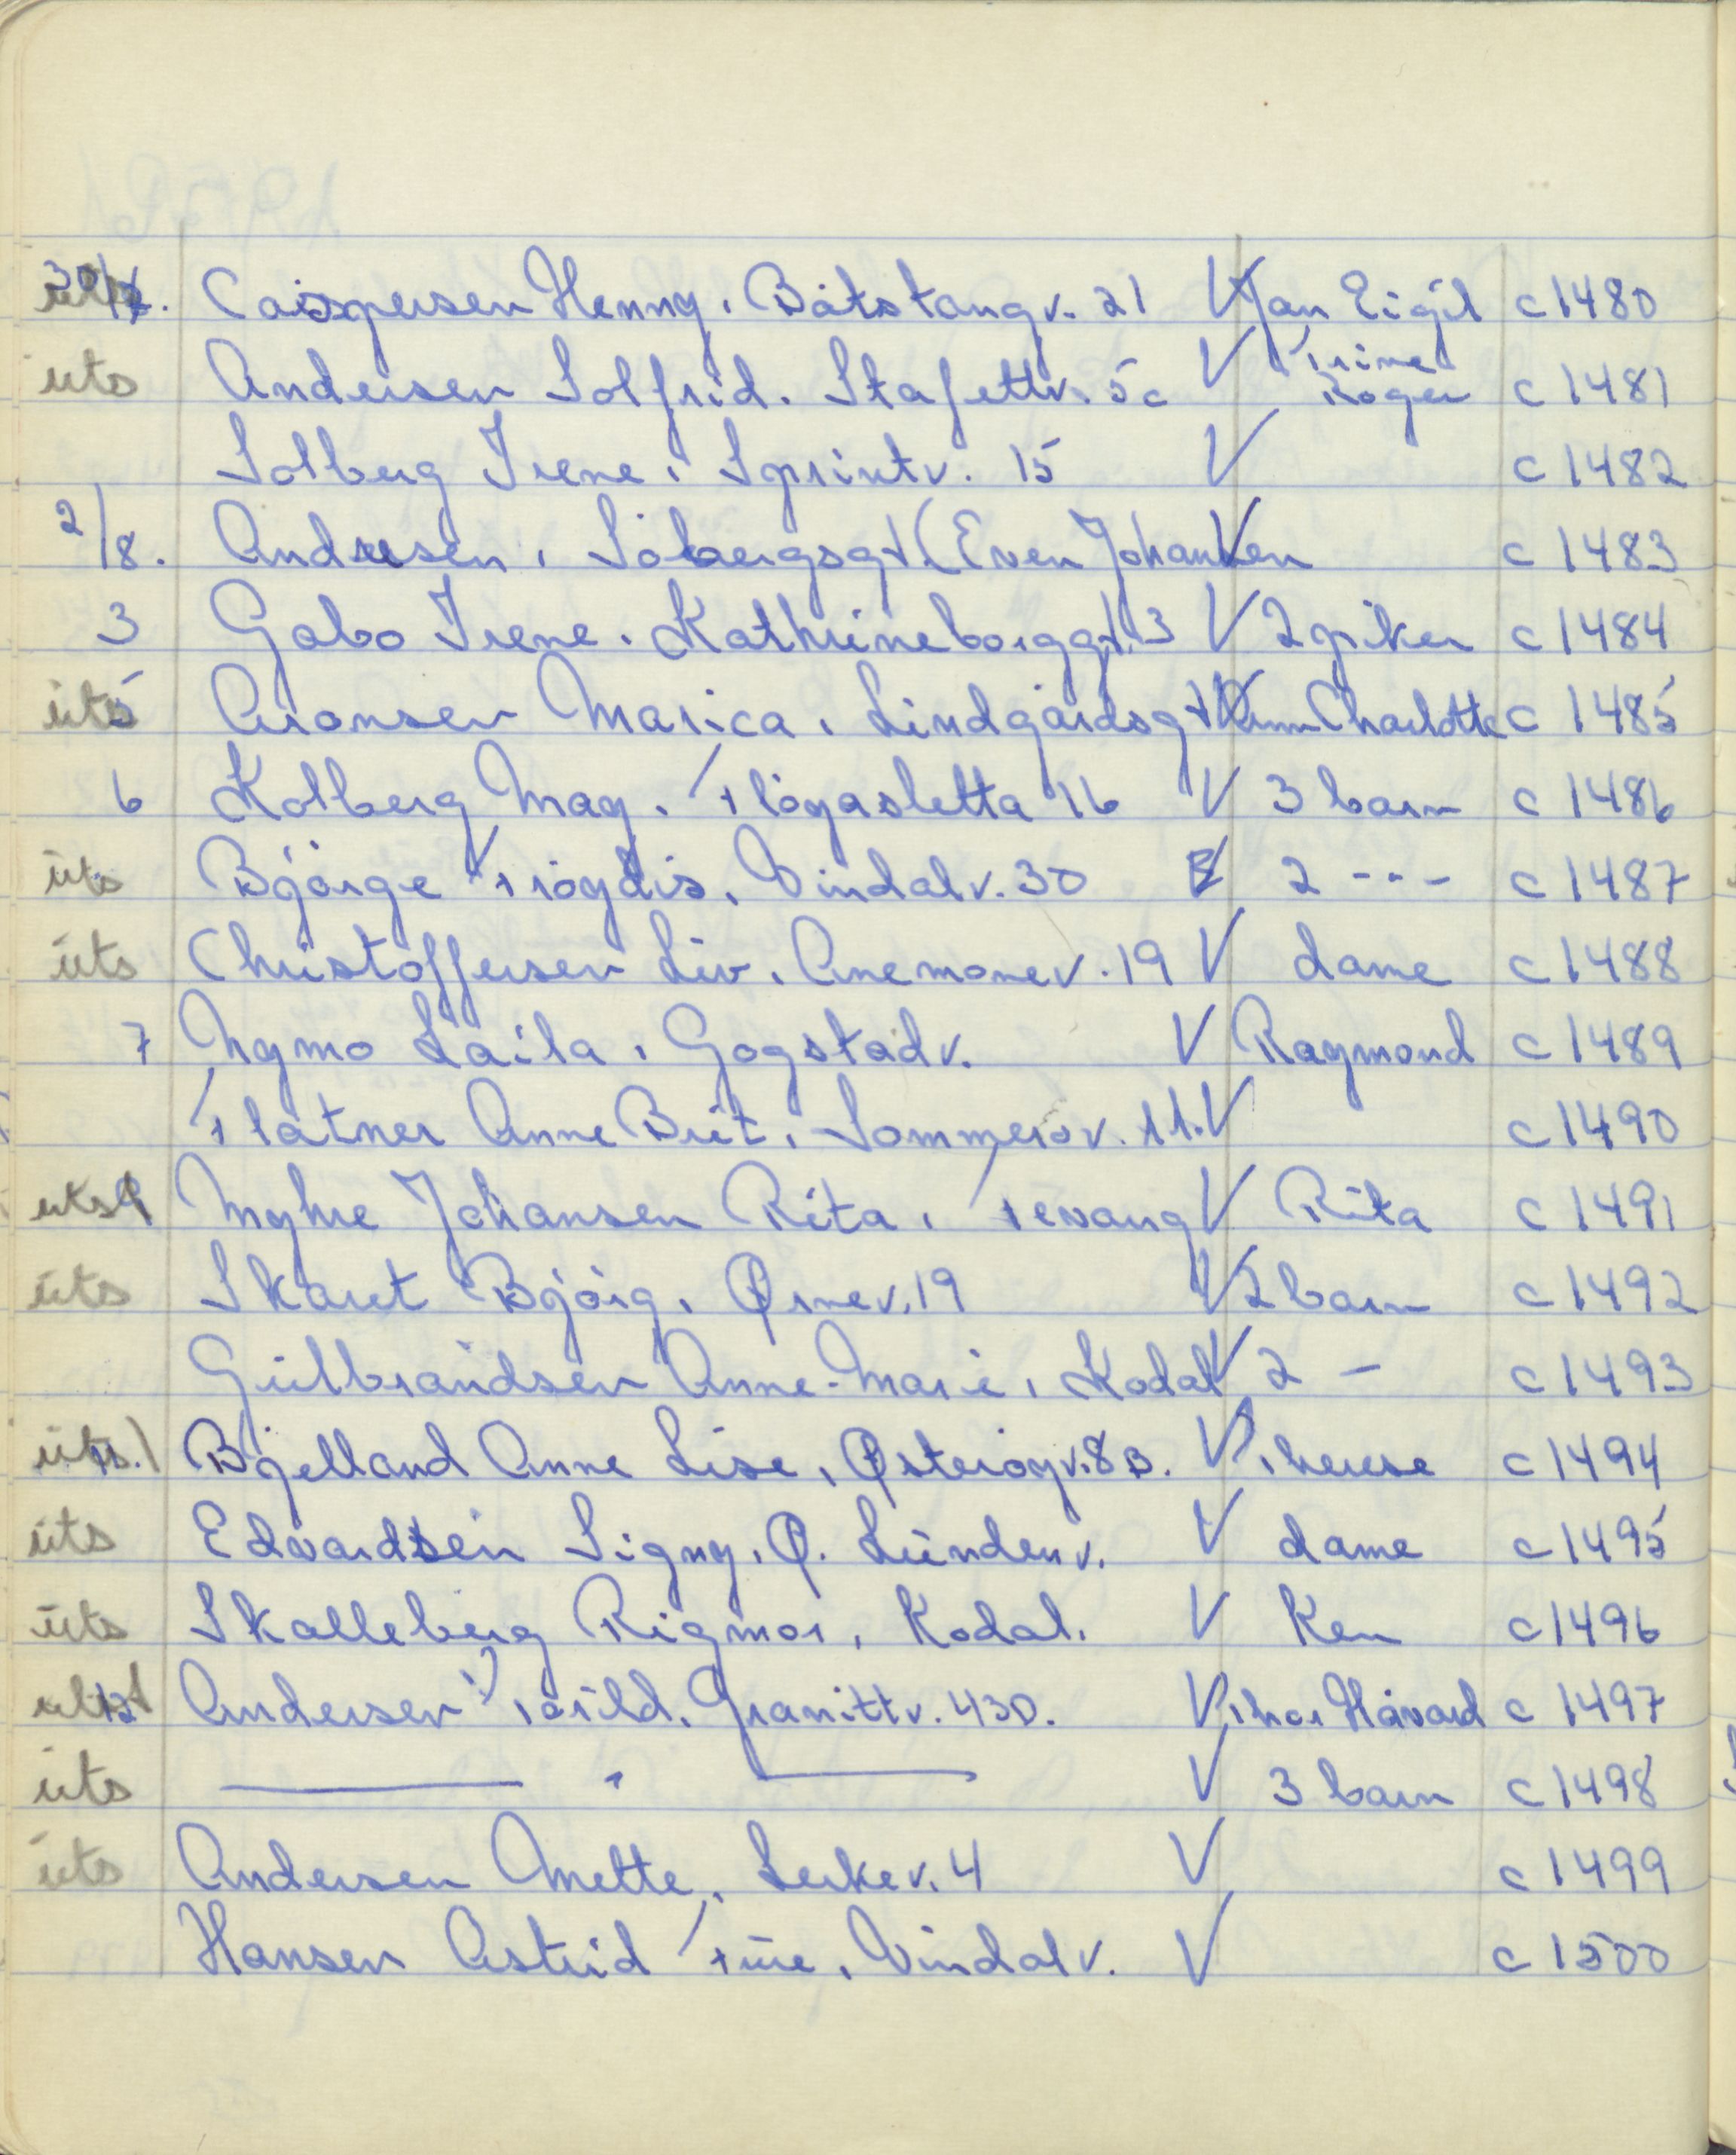 30/7. uts Caspersen Henny, Båtstangv. 21 V Jan Eigil c 1480
uts Andersen Solfrid. Stafettv. 5c V Trine Roger c 1481
Solberg Irene, Sprintv. 15 V c 1482
2/8. Andresen, Solbergsgt (Even Johansen V c 1483
3 Gabo Irene. Kathrineborggt. 13 V 2 piker c 1484
uts 5 Aronsen Marica, Lindgårdsgt V Ann Charlotte c 1485
6 Kolberg May. Fløyasletta 16 V 3 barn c 1486
uts Bjørge Frøydis, Vindalv. 30 V 2 --- c 1487
uts Christoffersen Liv, Anemonev. 19 V dame c 1488
7 Nymo Laila, Gogstadv. V Raymond c 1489
Flåtner Anne Brit, Sommerov. 11. V c 1490
uts 9 Myhre Johansen Rita, Fevang V Rita c 1491
uts Skaret Bjørg, Ørnev. 19 V 2 barn c 1492
Gulbrandsen Anne-Marie, Kodal V 2 — c 1493
uts 11. Bjelland Anne Lise, Østerøyv. 8B. V Therese c 1494
uts Edvardsen Signy, Ø. Lundenv. V dame c 1495
uts Skalleberg Rigmor, Kodal. V Ken c 1496
uts 12 Andersen Torild, Granittv. 43D. V Thor Håvard c 1497
uts — " — V 3 barn c 1498
uts Andersen Mette, Lerkev. 4 V c 1499
Hansen Astrid Fure, Vindalv. V c 1500